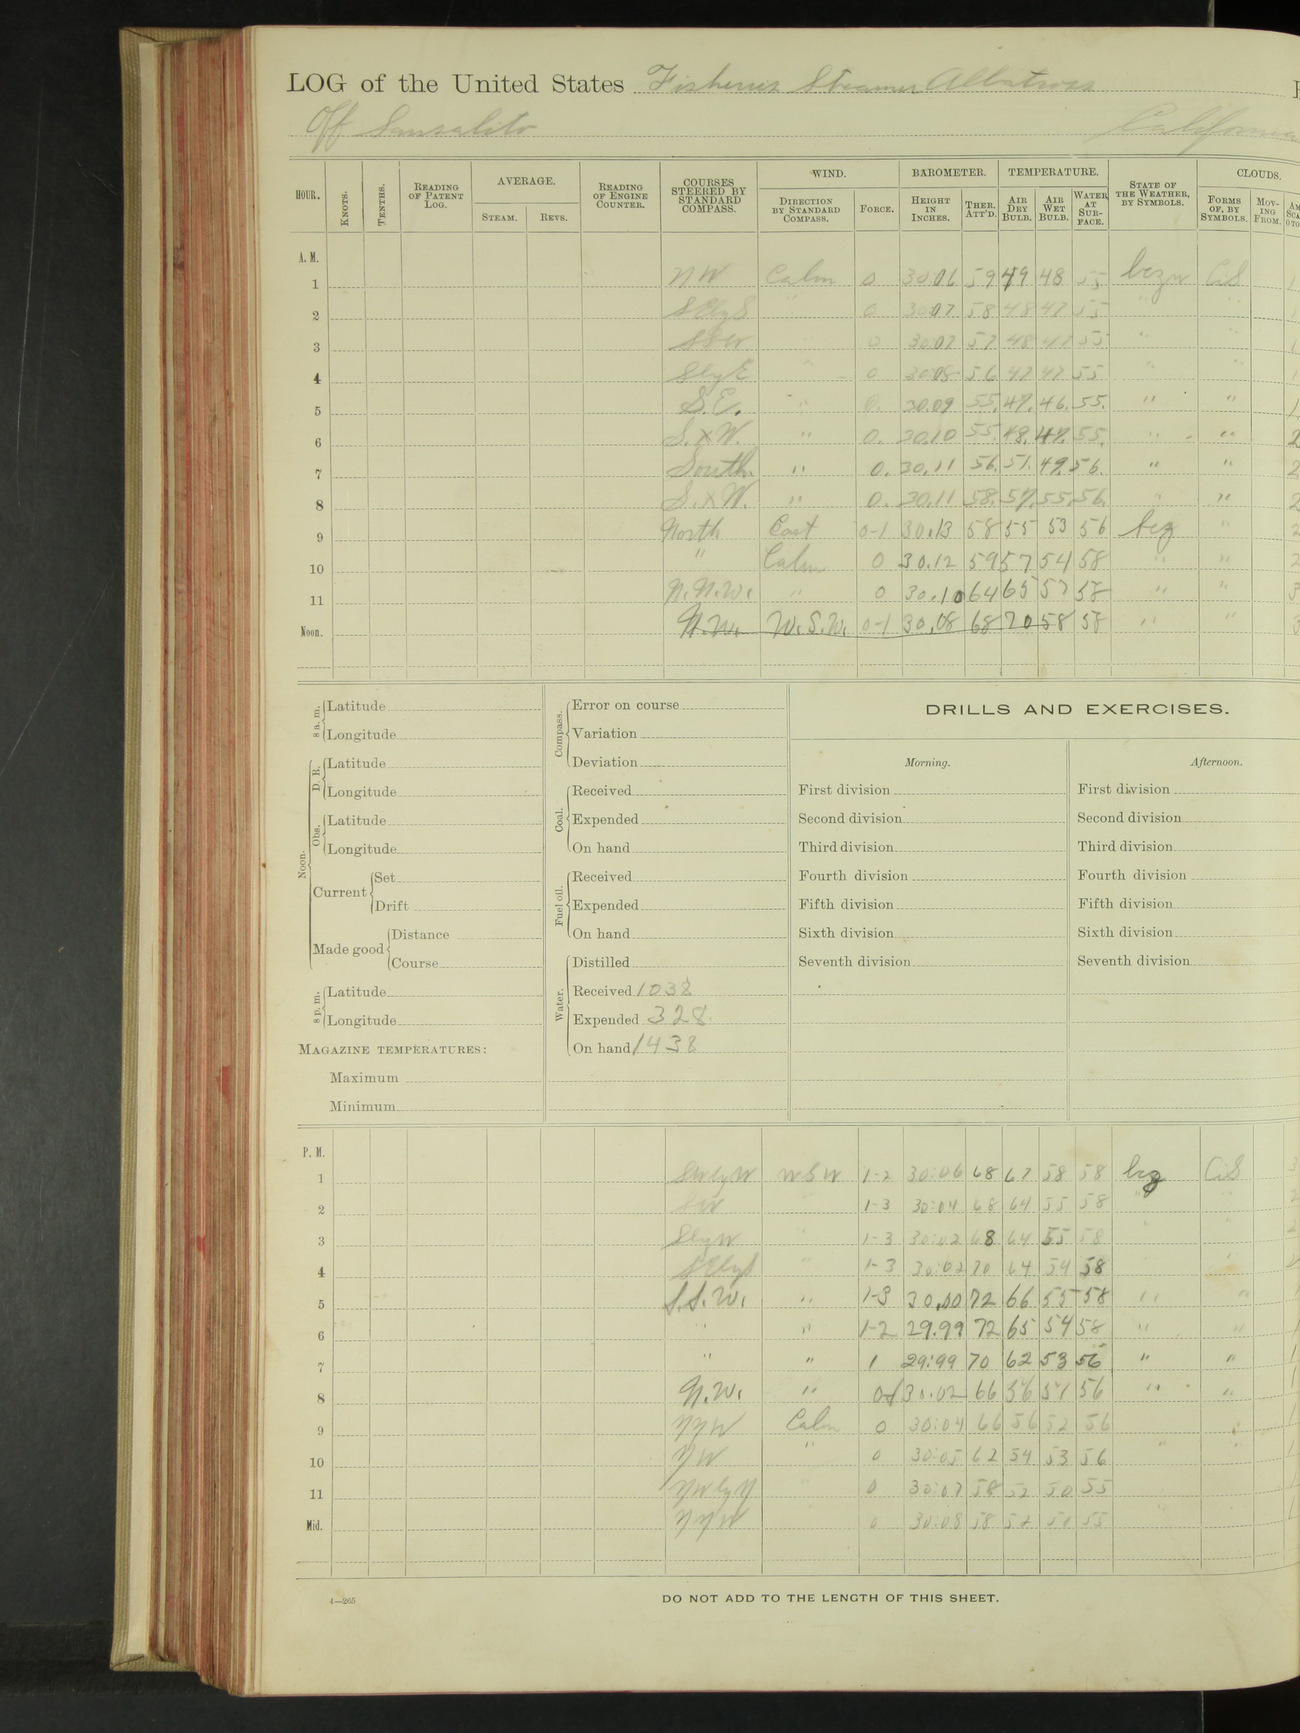 LOG of the United States Fisheries Steamer Albatross
Off Sausalito California
HOUR. KNOTS. TENTHS. READING OF PATENT LOG. AVERAGE. STEAM. REVS. READING OF ENGINE COUNTER. COURSES STEERED BY STANDARD COMPASS. WIND. DIRECTION BY STANDARD COMPASS. FORCE. BAROMETER. HEIGHT IN INCHES. THER. ATT'D. TEMPERATURE. AIR DRY BULB. AIR WET BULB. WATER AT SUR-FACE. STATE OF THE WEATHER, BY SYMBOLS. CLOUDS. FORMS OF, BY SYMBOLS. MOV-ING FROM.
A. M.
1 NW Calm 0 30.06 59 49 48 55 bczm CiS
2 SEbyS " 0 30.07 58 48 47 55 " "
3 SSW " 0 30.07 57 48 47 55 " "
4 SbyE " 0 30.08 56 47 47 55 " "
5 S.E. " 0. 30.09 55. 47. 46. 55. " " 1
6 S.xW. " 0. 30.10 55. 48. 47. 55. " " 2
7 South. " 0. 30.11 56. 51. 49. 56. " " 2
8 S.xW. " 0. 30.11 58. 57. 55. 56. " " 2
9 North East 0-1 30.13 58 55 53 56 bcz " 2
10 " Calm 0 30.12 59 57 54 58 " " 2
11 N.N.W. " 0 30.10 64 65 57 58 " " 3
Noon. N.W. W.S.W. 0-1 30.08 68 70 58 58 " " 3
8 a. m. Latitude
Longitude
Noon. D. R. Latitude
Longitude
Obs. Latitude
Longitude
Current Set
Drift
Made good Distance
Course
8 p. m. Latitude
Longitude
MAGAZINE TEMPERATURES:
Maximum
Minimum
Compass. Error on course
Variation
Deviation
Coal. Received
Expended
On hand
Fuel oil. Received
Expended
On hand
Water. Distilled
Received 1038
Expended 328
On hand 1438
DRILLS AND EXERCISES.
Morning. Afternoon.
First division First division
Second division Second division
Third division Third division
Fourth division Fourth division
Fifth division Fifth division
Sixth division Sixth division
Seventh division Seventh division
P. M.
1 SWbyW WSW 1-2 30.06 68 67 58 58 bcz CiS 3
2 SW " 1-3 30:04 68 64 55 58 " " 2
3 SbyW " 1-3 30:02 68 64 55 58 " " 2
4 SEbyS " 1-3 30:02 70 64 54 58 " 2
5 S.S.W. " 1-3 30.00 72 66 55 58 " "
6 " " 1-2 29.99 72 65 54 58 " "
7 " " 1 29:99 70 62 53 56 " "
8 N.W. " 0-1 30.02 66 56 51 56 " "
9 NNW Calm 0 30:04 66 56 52 56 "
10 NW " 0 30:05 62 54 53 56 " "
11 NWbyN 0 30:07 58 52 50 55
Mid. NNW 0 30:08 58 52 50 55
4—265
DO NOT ADD TO THE LENGTH OF THIS SHEET.